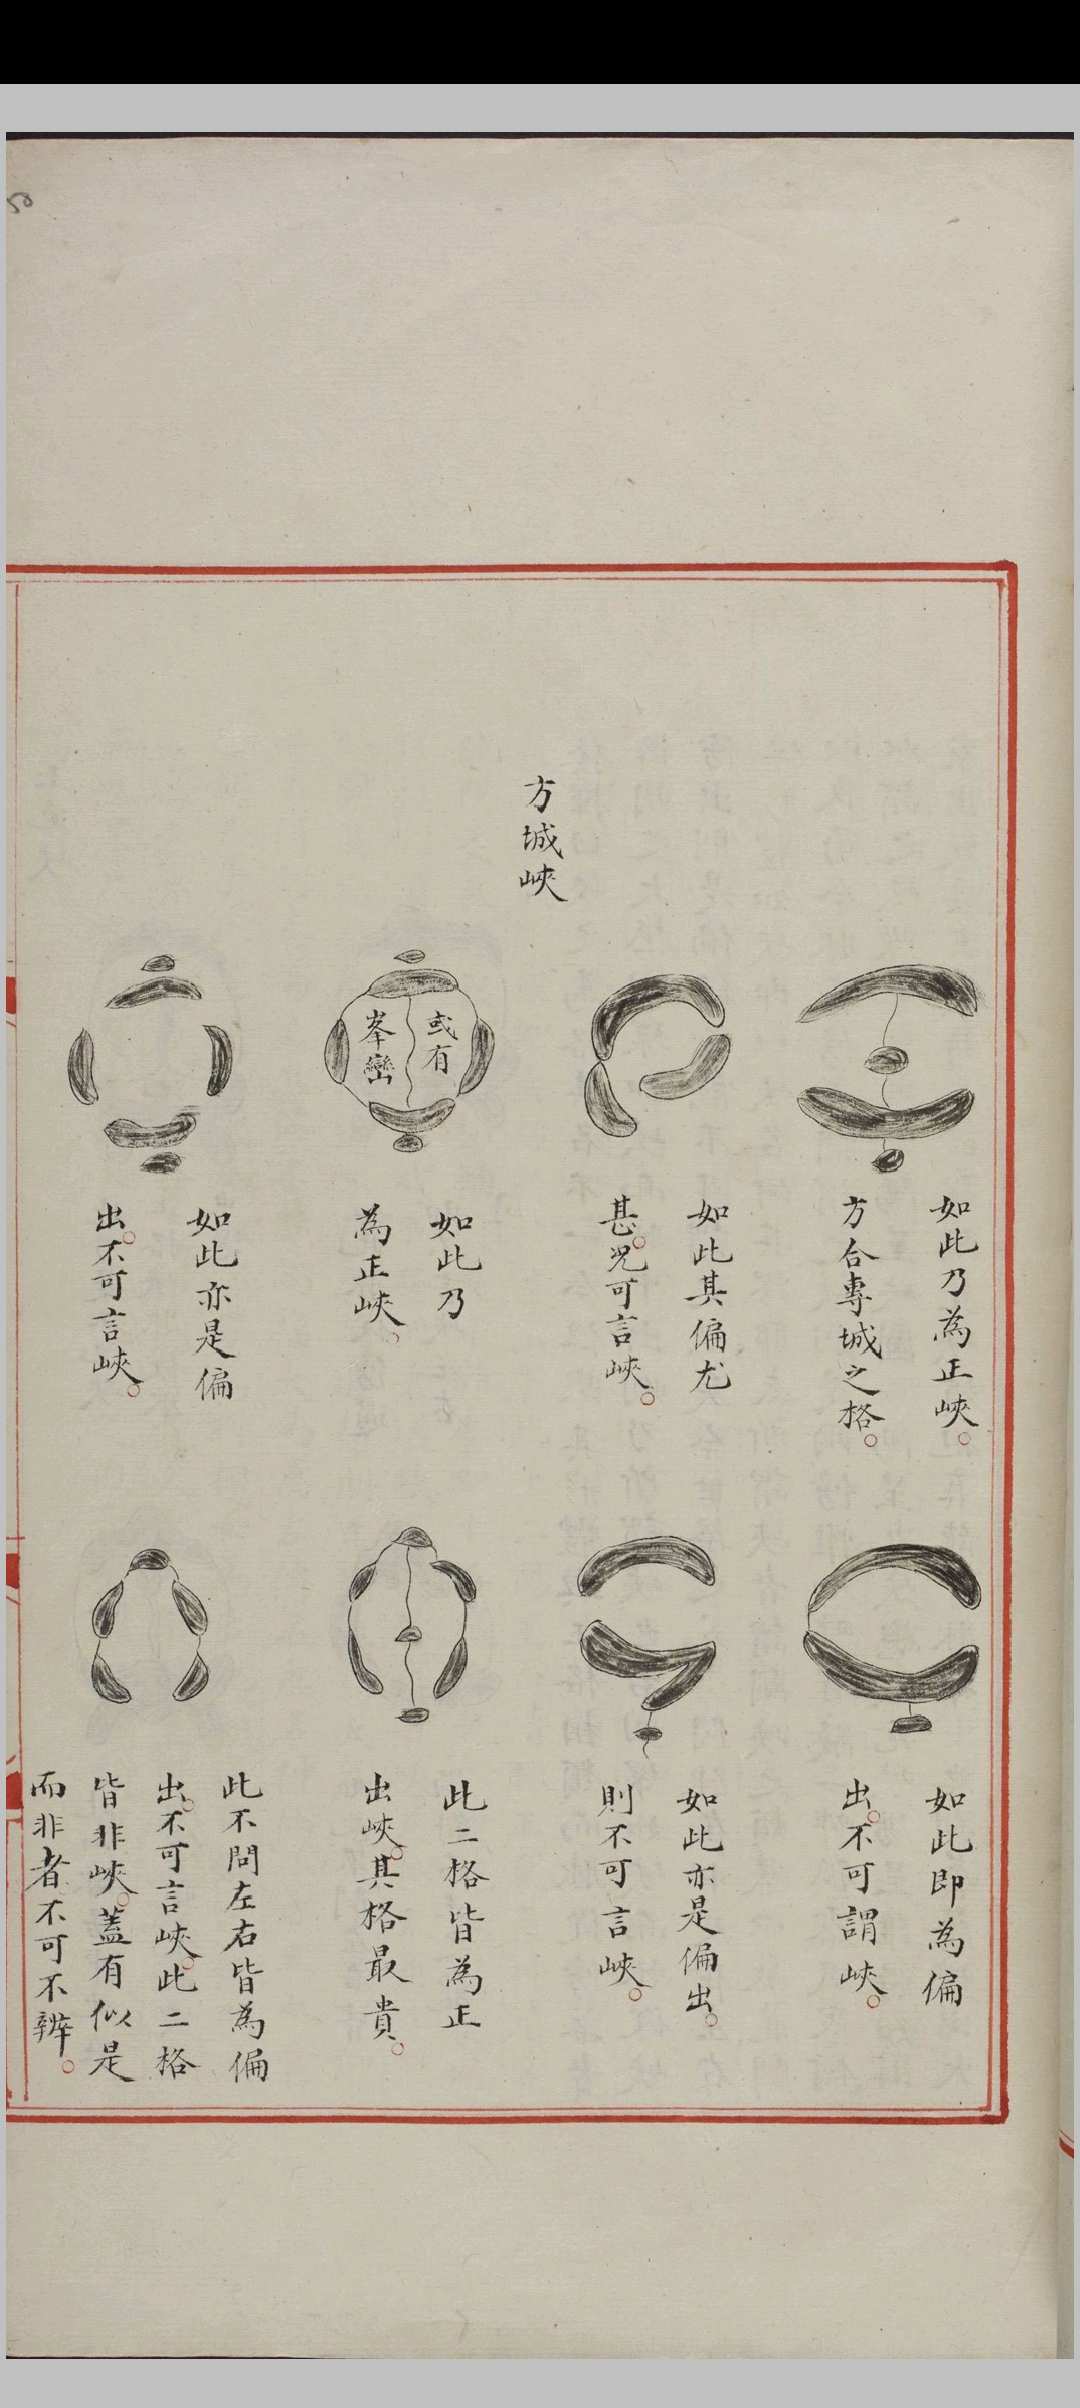 50
方城峽
如此乃為正峽。
方合專城之格。
如此其偏尤
甚。況可言峽。
或有
峯巒
如此乃
為正峽。
如此亦是偏
出。不可言峽。
如此即為偏
出。不可謂峽。
如此亦是偏出。
則不可言峽。
此二格皆為正
出峽。其格最貴。
此不問左右皆為偏
出。不可言峽。此二格
皆非峽。蓋有似是
而非者不可不辨。